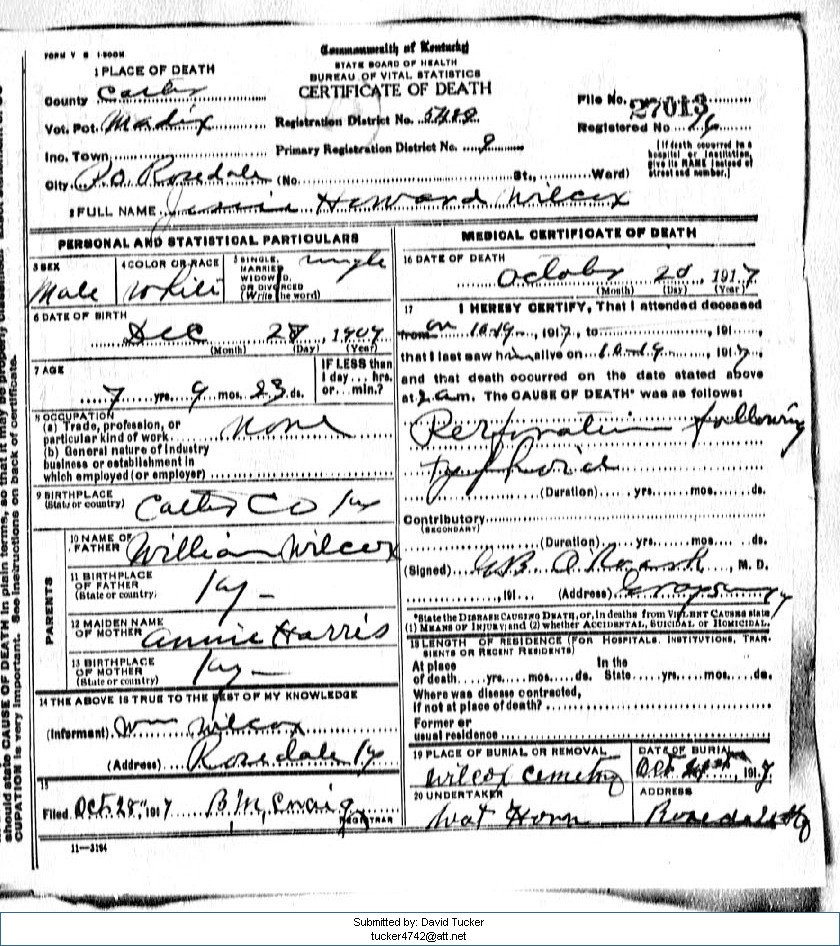 FORM V S 1-500M
Commonwealth of Kentucky
STATE BOARD OF HEALTH
BUREAU OF VITAL STATISTICS
CERTIFICATE OF DEATH
1 PLACE OF DEATH
County Carter
Vot. Pct. Madix
Inc. Town
City P.O. Rosedale (No. St., Ward)
Registration District No. 5488
Primary Registration District No. 8
File No. 27013
Registered No 16
[If death occurred in a
hospital or institution,
give its NAME instead of
street and number.]
2 FULL NAME Jessie Howard Wilcox
PERSONAL AND STATISTICAL PARTICULARS
3 SEX
Male
4 COLOR OR RACE
White
5 SINGLE,
MARRIED
WIDOWED,
OR DIVORCED
(Write the word)
single
6 DATE OF BIRTH
Dec 28 1909
(Month) (Day) (Year)
7 AGE
7 yrs. 9 mos. 23 ds.
IF LESS than
1 day... hrs.
or... min.?
8 OCCUPATION
(a) Trade, profession, or
particular kind of work none
(b) General nature of industry
business or establishment in
which employed (or employer)
9 BIRTHPLACE
(State or country)
Carter Co Ky
PARENTS
10 NAME OF
FATHER William Wilcox
11 BIRTHPLACE
OF FATHER
(State or country) Ky
12 MAIDEN NAME
OF MOTHER Annie Harris
13 BIRTHPLACE
OF MOTHER
(State or country) Ky
14 THE ABOVE IS TRUE TO THE BEST OF MY KNOWLEDGE
(Informant) Wm Wilcox
(Address) Rosedale Ky
15
Filed Oct. 28th, 1917 B.M. Craig
REGISTRAR
11-3184
MEDICAL CERTIFICATE OF DEATH
16 DATE OF DEATH
October 20, 1917
(Month) (Day) (Year)
17 I HEREBY CERTIFY, That I attended deceased
from on 10-19, 1917, to, 191
that I last saw him alive on 10-19, 1917,
and that death occurred on the date stated above
at 2 a.m. The CAUSE OF DEATH* was as follows:
Perforation following
typhoid
(Duration) yrs. mos. ds.
Contributory
(SECONDARY)
(Duration) yrs. mos. ds.
(Signed) G.B. O'Roark, M. D.
, 191 (Address) Grayson Ky
*State the DISEASE CAUSING DEATH, or, in deaths from VIOLENT CAUSES state
(1) MEANS OF INJURY; and (2) whether ACCIDENTAL, SUICIDAL or HOMICIDAL.
18 LENGTH OF RESIDENCE (FOR HOSPITALS, INSTITUTIONS, TRAN-
SIENTS OR RECENT RESIDENTS)
At place In the
of death yrs. mos. ds. State yrs. mos. ds.
Where was disease contracted,
if not at place of death?
Former or
usual residence
19 PLACE OF BURIAL OR REMOVAL
Wilcox Cemetery
DATE OF BURIAL
Oct 21st, 1917
20 UNDERTAKER
Wat Horn
ADDRESS
Rosedale Ky
should state CAUSE OF DEATH in plain terms, so that it may be properly classified.
CUPATION is very important. See instructions on back of certificate.
Submitted by: David Tucker
tucker4742@att.net